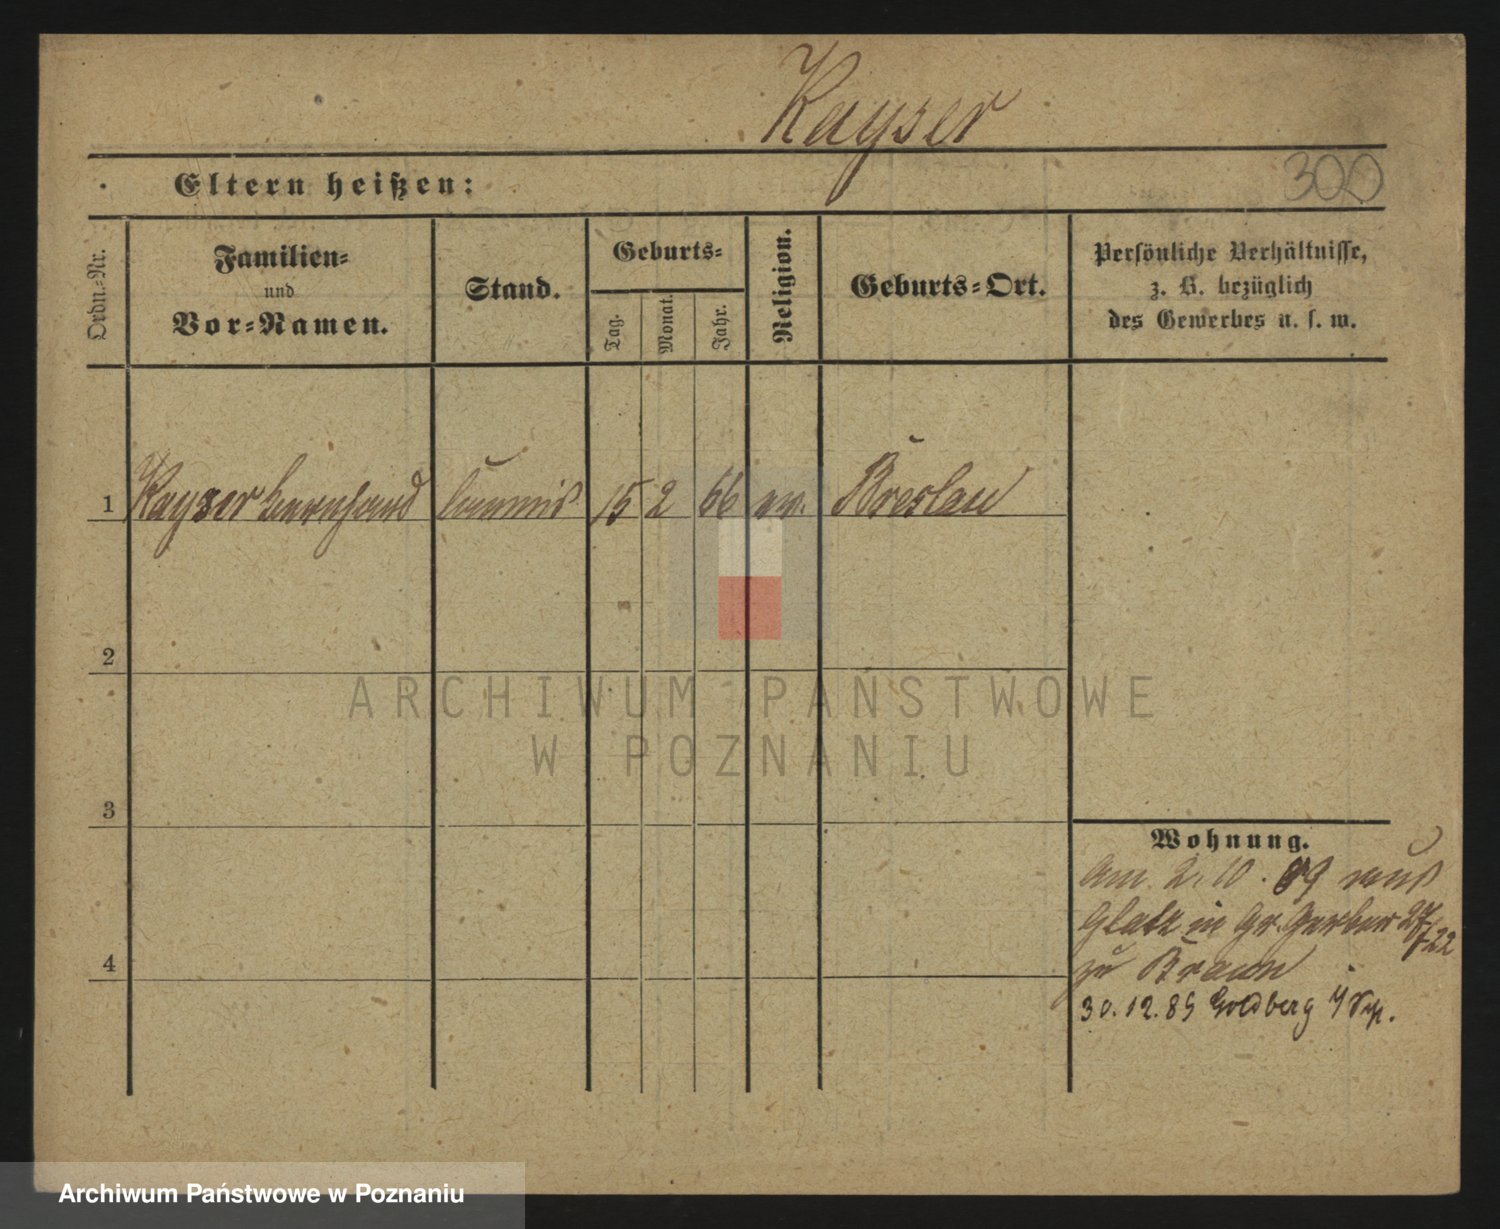 Kayser
300
Eltern heißen:
Ordn.-Nr.
Familien-
und
Vor-Namen.
Stand.
Geburts-
Tag.
Monat.
Jahr.
Religion.
Geburts-Ort.
Persönliche Verhältnisse,
z. B. bezüglich
des Gewerbes u. s. w.
1 Kayser Bernhard Commis 15 2 66 ev. Breslau
2
3
4
ARCHIWUM PAŃSTWOWE
W POZNANIU
Wohnung.
Am 2. 10. 89 aus
Glatz in Gr. Gerber 27
/22
zu Braun
30. 12. 89 Goldberg
Archiwum Państwowe w Poznaniu